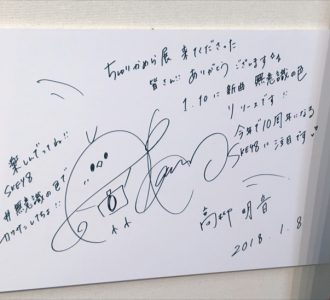 ちゅりかめら展 来てくださった
皆さん!! ありがとう ございます
1.10に 新曲 無意識の色
リリースです!!
今年で10周年になる
SKE48に注目です
楽しんでってね!!
SKE48
#無意識の色で
高柳 明音
2018.1.8